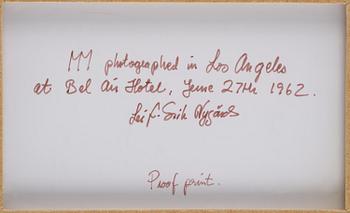 MM photographed in Los Angeles
at Bel Air Hotel, June 27th 1962.
Leif-Erik Nygårds
Proof print.